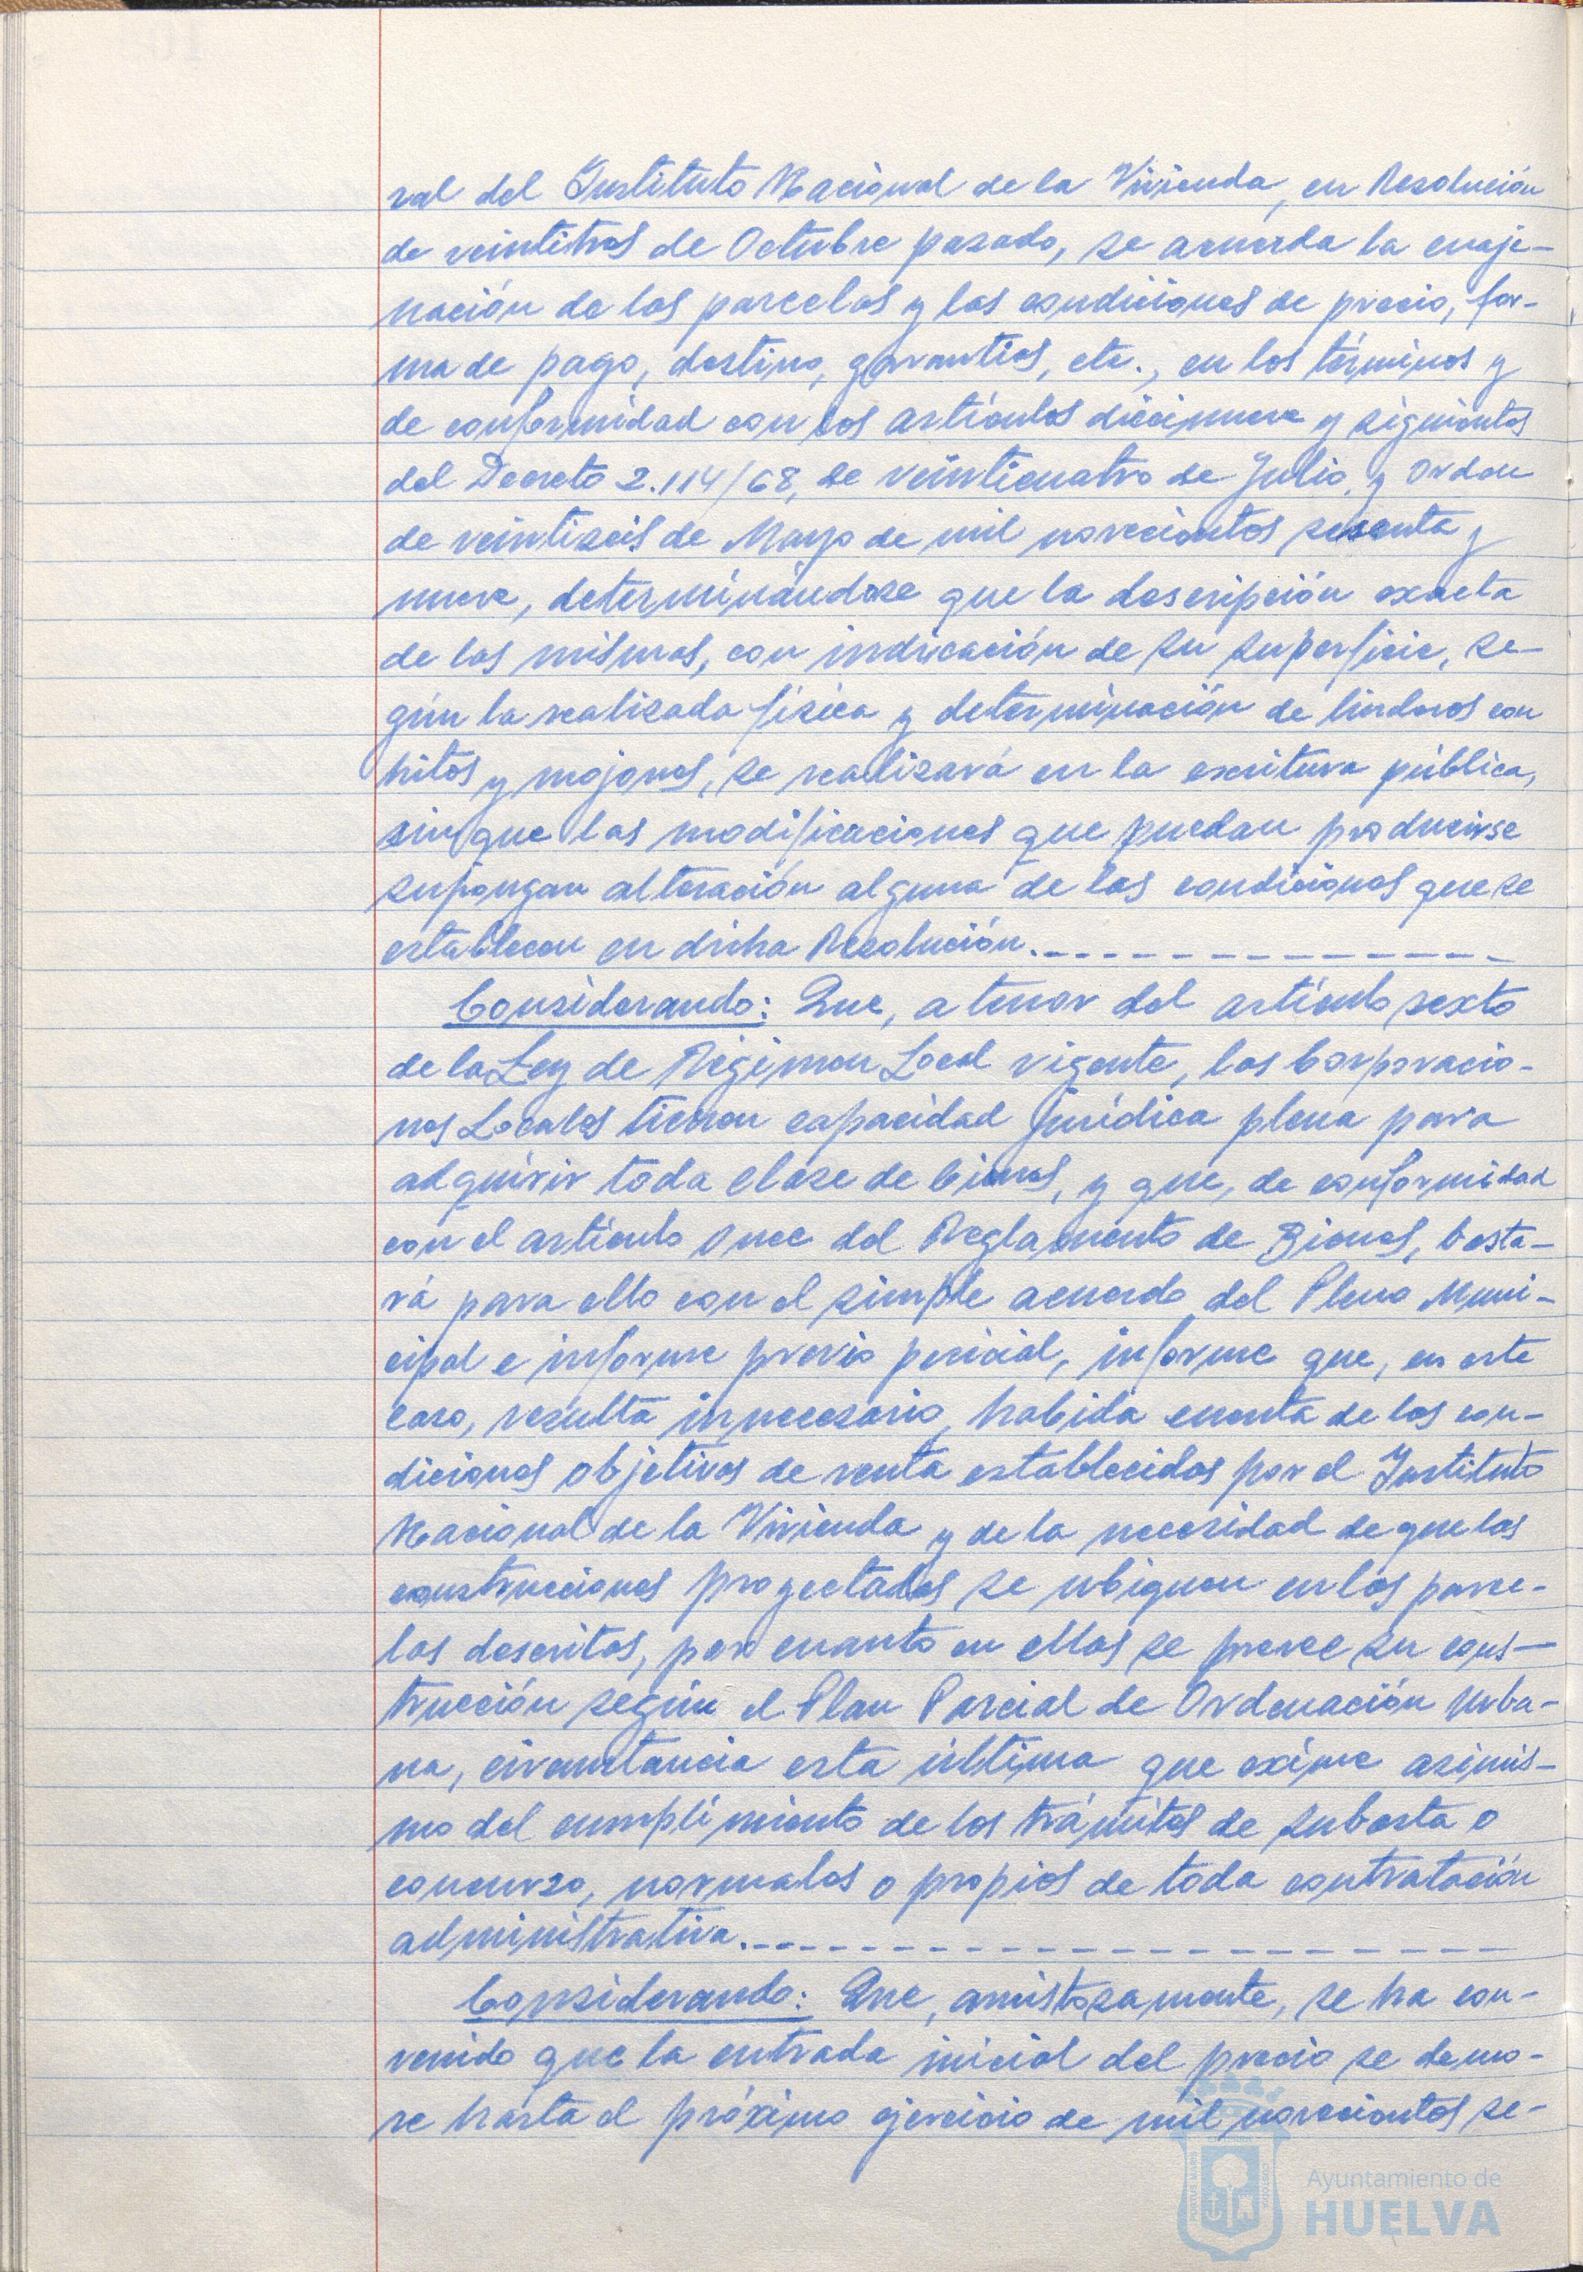 ral del Instituto Nacional de la Vivienda, en Resolución
de veintitres de Octubre pasado, se acuerda la enaje-
nación de las parcelas y las condiciones de precio, for-
ma de pago, destino, garantias, etc., en los términos y
de conformidad con los artículos diecinueve y siguientes
del Decreto 2.114/68, de veinticuatro de Julio, y Orden
de veintiseis de Mayo de mil novecientos sesenta y
nueve, determinándose que la descripción exacta
de las mismas, con indicación de su superficie, se-
gún la realizada física y determinación de linderos con
hitos y mojones, se realizará en la escritura pública,
sin que las modificaciones que puedan producirse
supongan alteración alguna de las condiciones que se
establecen en dicha Resolución.
Considerando: Que, a tenor del artículo sexto
de la Ley de Régimen Local vigente, las Corporacio-
nes Locales tienen capacidad jurídica plena para
adquirir toda clase de bienes, y que, de conformidad
con el artículo once del Reglamento de Bienes, basta-
rá para ello con el simple acuerdo del Pleno Muni-
cipal e informe previo pericial, informe que, en este
caso, resulta innecesario, habida cuenta de las con-
diciones objetivas de venta establecidas por el Instituto
Nacional de la Vivienda y de la necesidad de que las
construcciones proyectadas se ubiquen en las parce-
las descritas, por cuanto en ellas se prevee su cons-
trucción según el Plan Parcial de Ordenación Urba-
na, circunstancia esta última que exime asimis-
mo del cumplimiento de los trámites de subasta o
concurso, normales o propios de toda contratación
administrativa.
Considerando: Que, amistosamente, se ha con-
venido que la entrada inicial del precio se demo-
re hasta el próximo ejercicio de mil novecientos se-
PORTUS MARIS
CUSTODIA
Ayuntamiento de
HUELVA